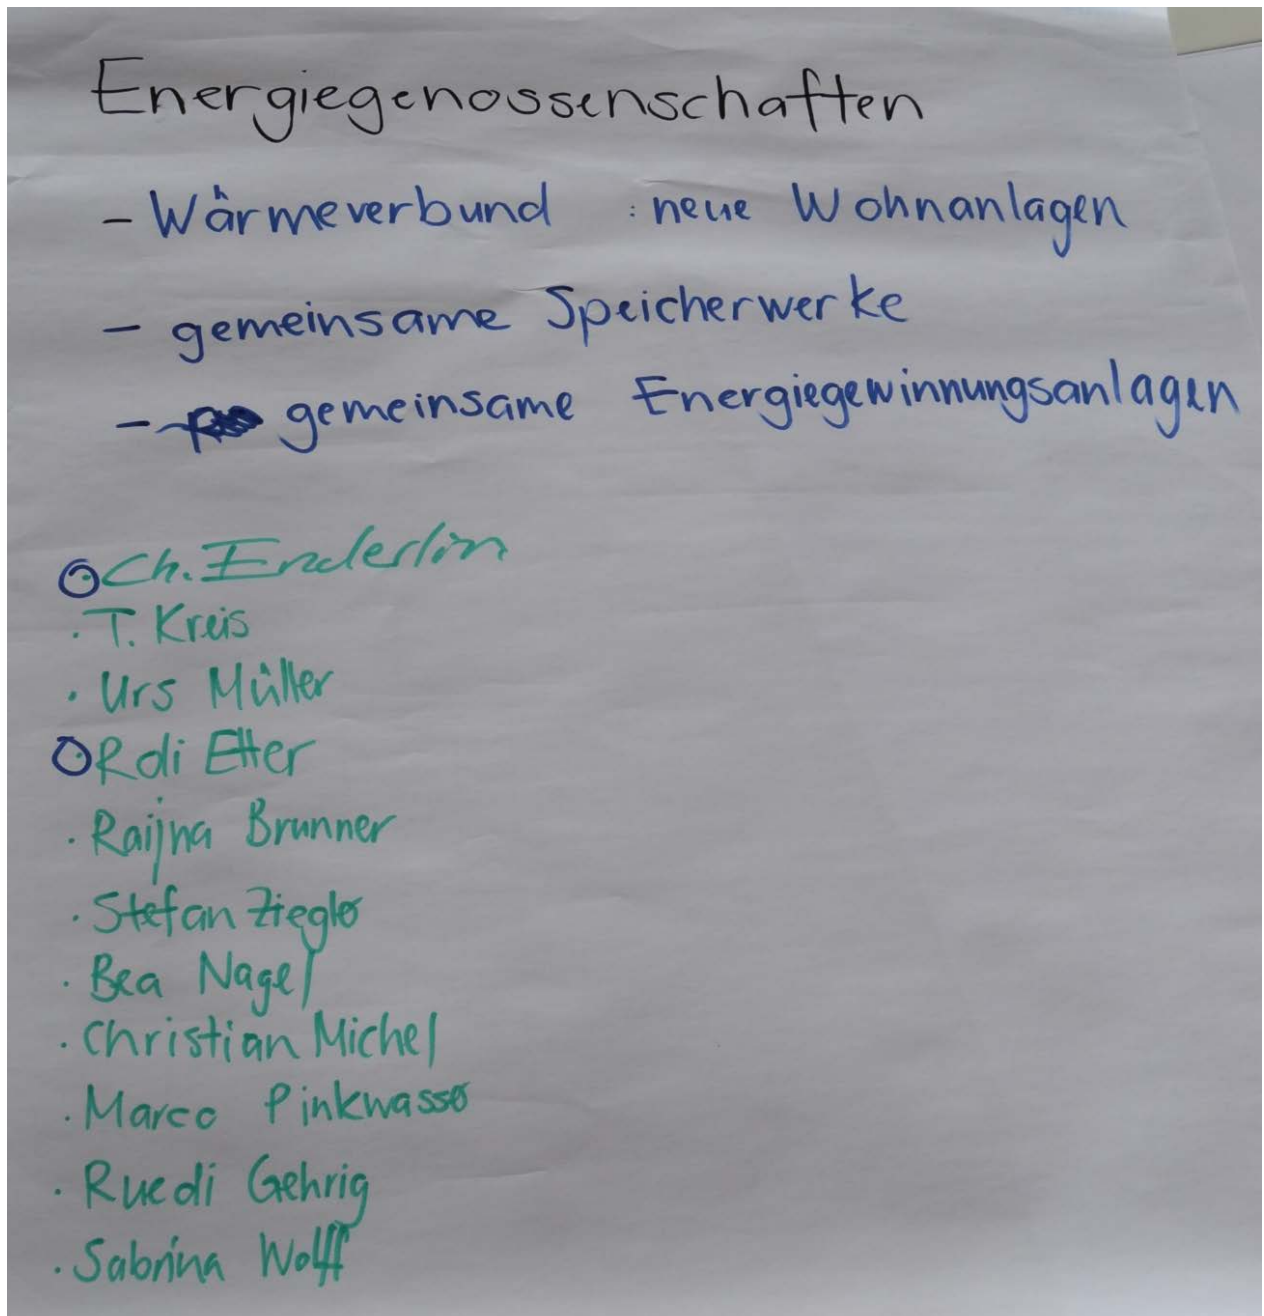 Energiegenossenschaften
- Wärmeverbund : neue Wohnanlagen
- gemeinsame Speicherwerke
- gemeinsame Energiegewinnungsanlagen
Ch. Enderlin
· T. Kreis
· Urs Müller
Roli Etter
· Raijna Brunner
· Stefan Ziegler
· Bea Nagel
· Christian Michel
· Marco Pinkwasser
· Ruedi Gehrig
· Sabrina Wolff